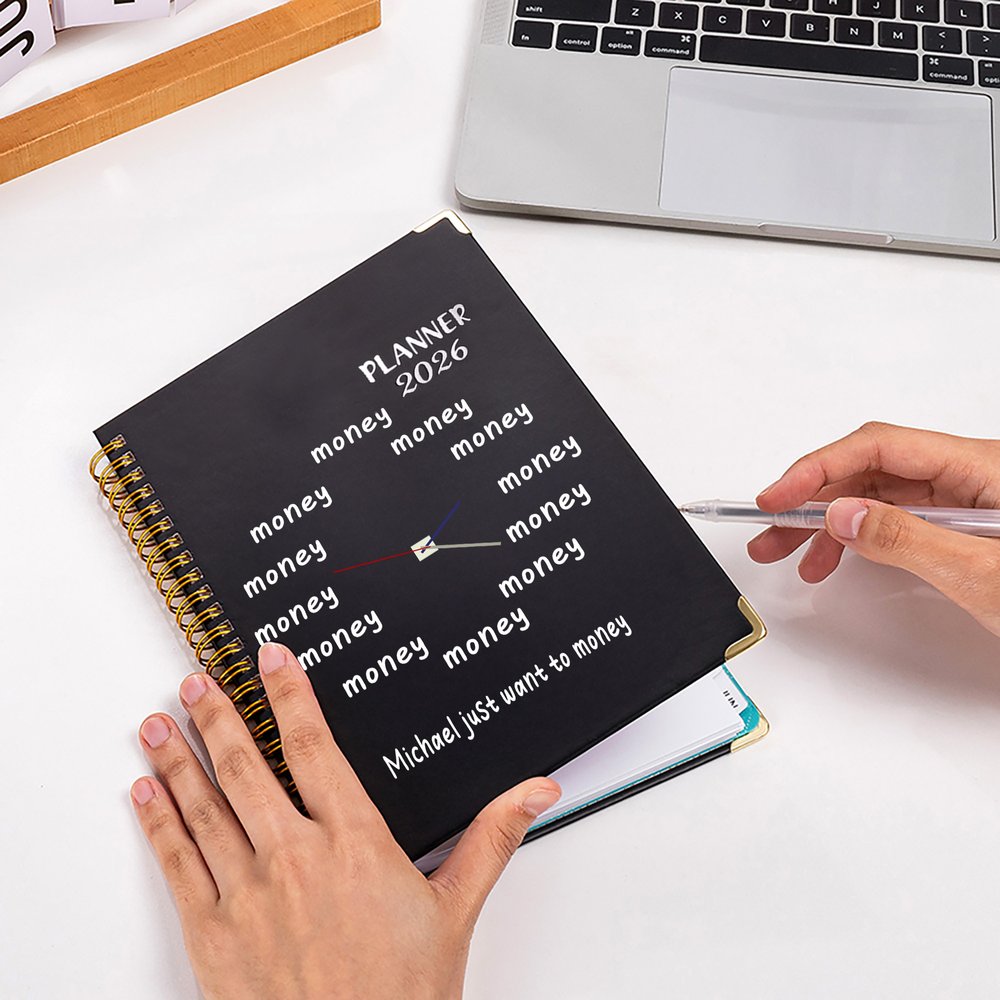 JU
shift Z X C V B N M < >
fn control option command command
PLANNER
2026
money
money
money
money
money
money
money
money
money
money
money
money
money
Michael just want to money